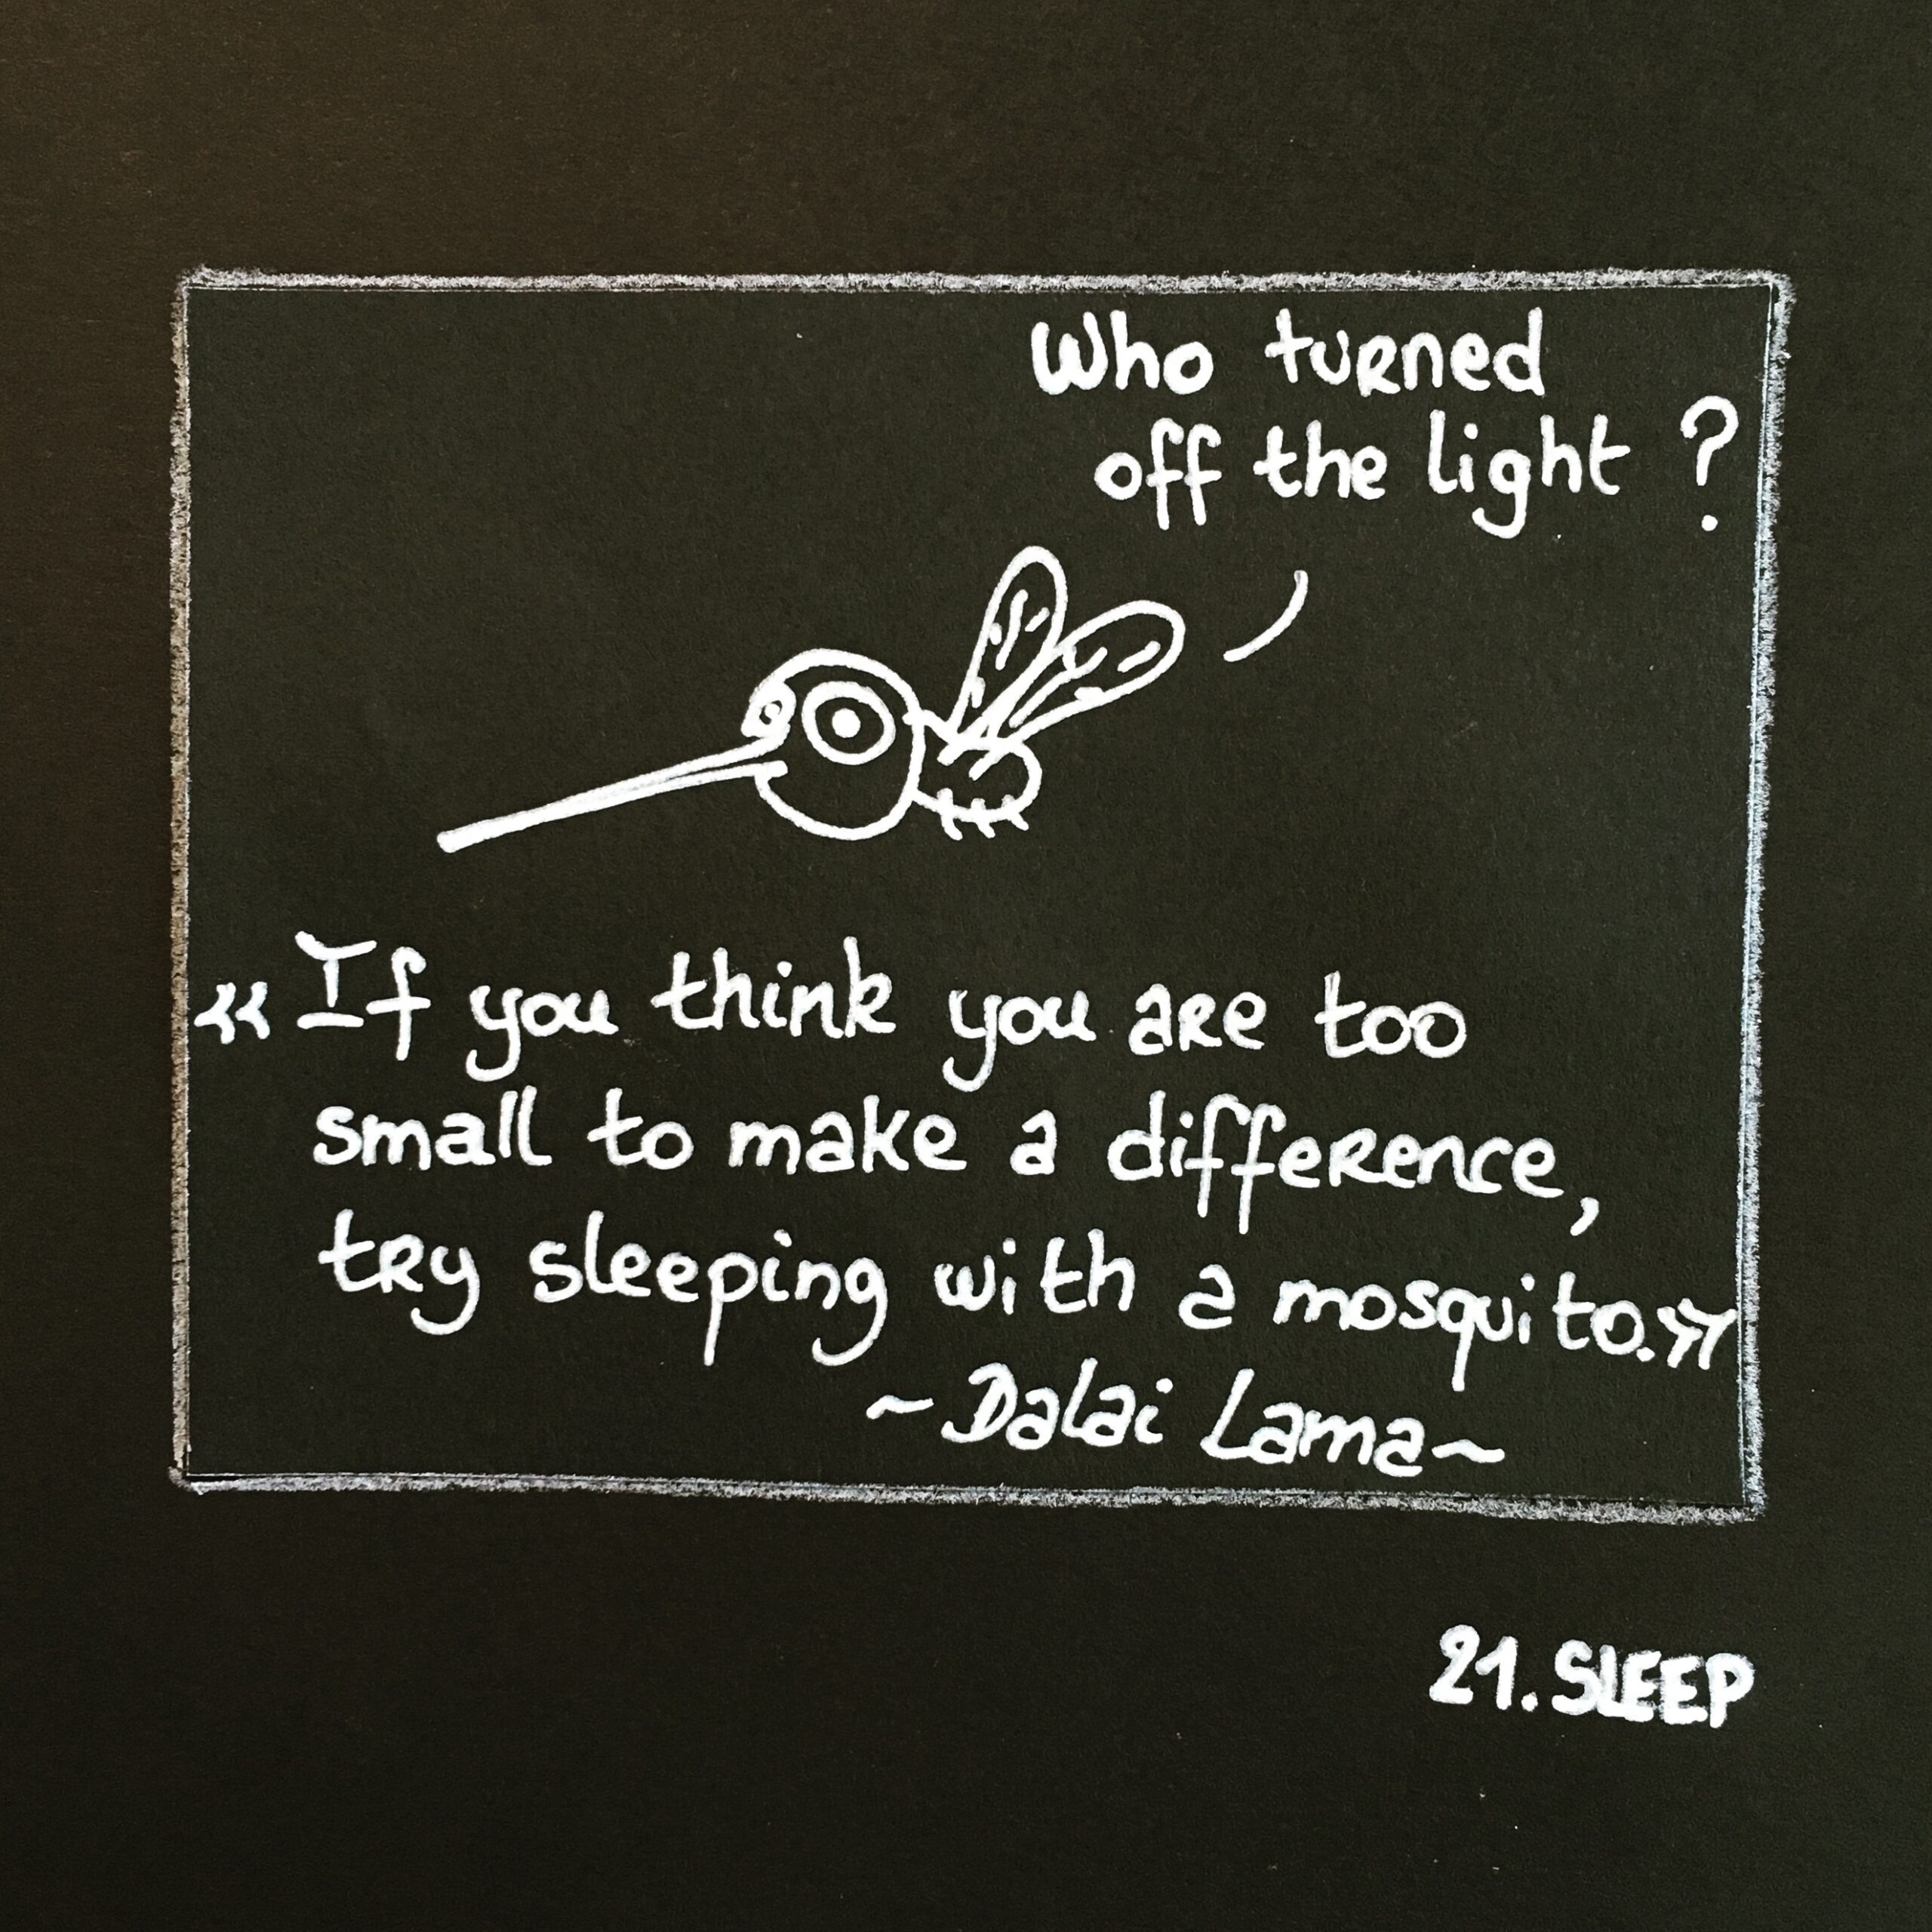 Who turned
off the light ?
« If you think you are too
small to make a difference,
try sleeping with a mosquito.»
~Dalai Lama~
21. SLEEP